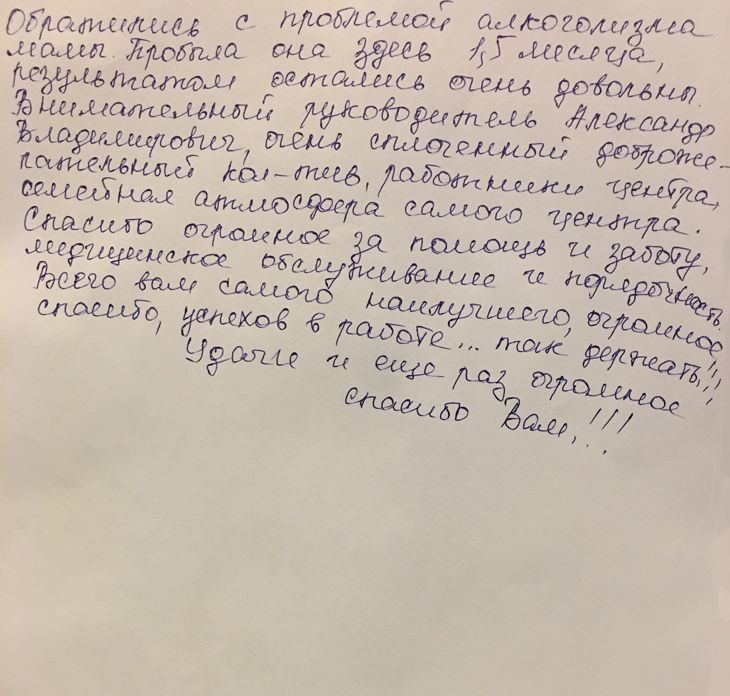 Обратились с проблемой алкоголизма
мамы. Пробыла она здесь 1,5 месяца,
результатом остались очень довольны.
Внимательный руководитель Александр
Владимирович, очень сплоченный доброже-
лательный кол-тив, работники центра,
семейная атмосфера самого центра.
Спасибо огромное за помощь и заботу,
медицинское обслуживание и порядочность.
Всего вам самого наилучшего, огромное
спасибо, успехов в работе... так держать!!!
Удачи и еще раз огромное
спасибо Вам,!!!